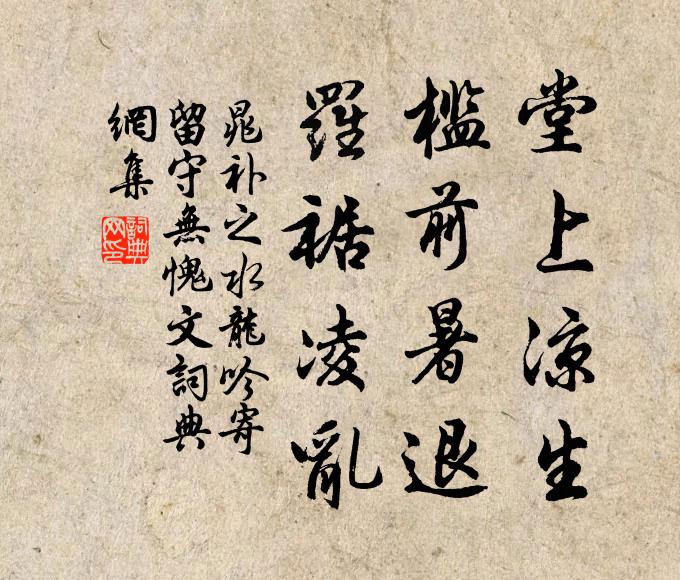 堂上凉生
槛前暑退
羅裾凌亂
晁补之水龍吟寄
留守無愧文詞典
網集
詞典
网印